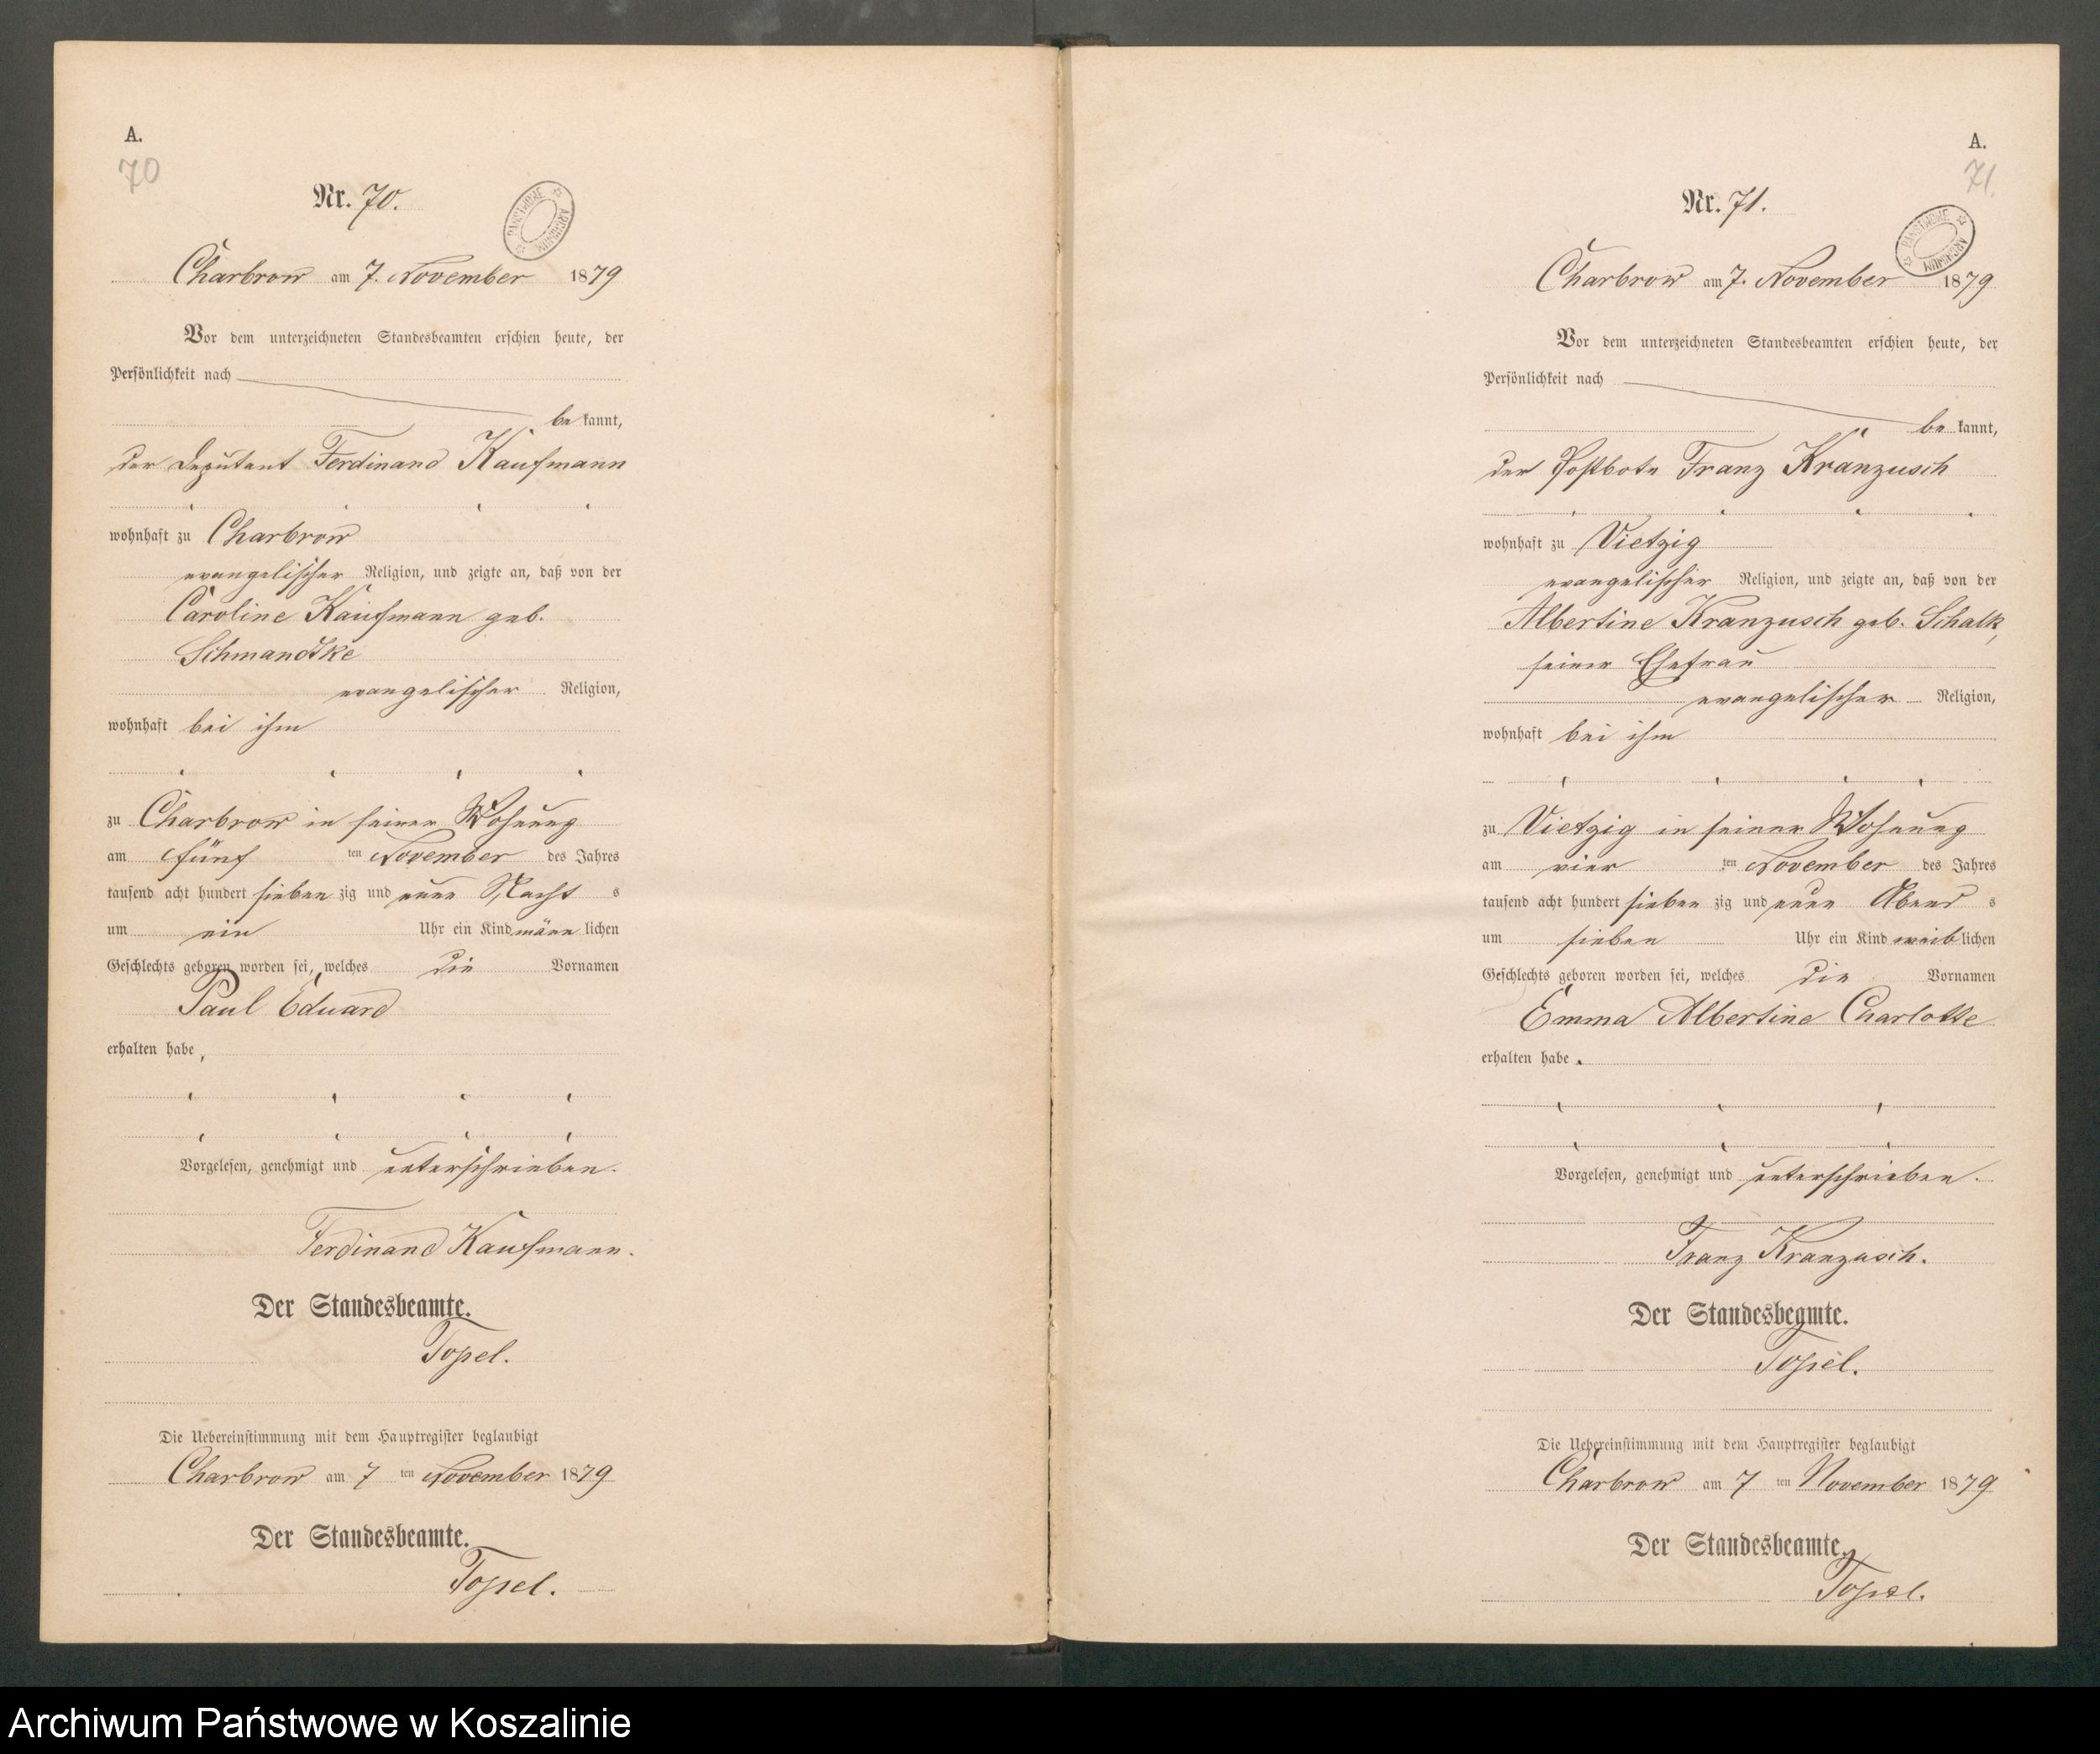 A.
70
Nr. 70.
PAŃSTWOWE ARCHIWUM
Charbrow am 7. November 1879
Vor dem unterzeichneten Standesbeamten erschien heute, der
Persönlichkeit nach
be kannt,
der Deputant Ferdinand Kaufmann
wohnhaft zu Charbrow
evangelischer Religion, und zeigte an, daß von der
Caroline Kaufmann geb.
Schmandtke
evangelischer Religion,
wohnhaft bei ihm
zu Charbrow in seiner Wohnung
am fünf ten November des Jahres
tausend acht hundert sieben zig und neun Nacht s
um ein Uhr ein Kind männ lichen
Geschlechts geboren worden sei, welches die Vornamen
Paul Eduard
erhalten habe,
Vorgelesen, genehmigt und unterschrieben.
Ferdinand Kaufmann.
Der Standesbeamte.
Topel.
Die Uebereinstimmung mit dem Hauptregister beglaubigt
Charbrow am 7 ten November 1879
Der Standesbeamte.
Topel.
A.
71.
Nr. 71.
PAŃSTWOWE ARCHIWUM
Charbrow am 7. November 1879
Vor dem unterzeichneten Standesbeamten erschien heute, der
Persönlichkeit nach
be kannt,
der Postbote Franz Kranzusch
wohnhaft zu Vietzig
evangelischer Religion, und zeigte an, daß von der
Albertine Kranzusch geb. Schalk,
seiner Ehefrau
evangelischer Religion,
wohnhaft bei ihm
zu Vietzig in seiner Wohnung
am vier ten November des Jahres
tausend acht hundert sieben zig und neun Abend s
um sieben Uhr ein Kind weib lichen
Geschlechts geboren worden sei, welches die Vornamen
Emma Albertine Charlotte
erhalten habe.
Vorgelesen, genehmigt und unterschrieben.
Franz Kranzusch.
Der Standesbeamte.
Topel.
Die Uebereinstimmung mit dem Hauptregister beglaubigt
Charbrow am 7 ten November 1879
Der Standesbeamte.
Topel.
Archiwum Państwowe w Koszalinie